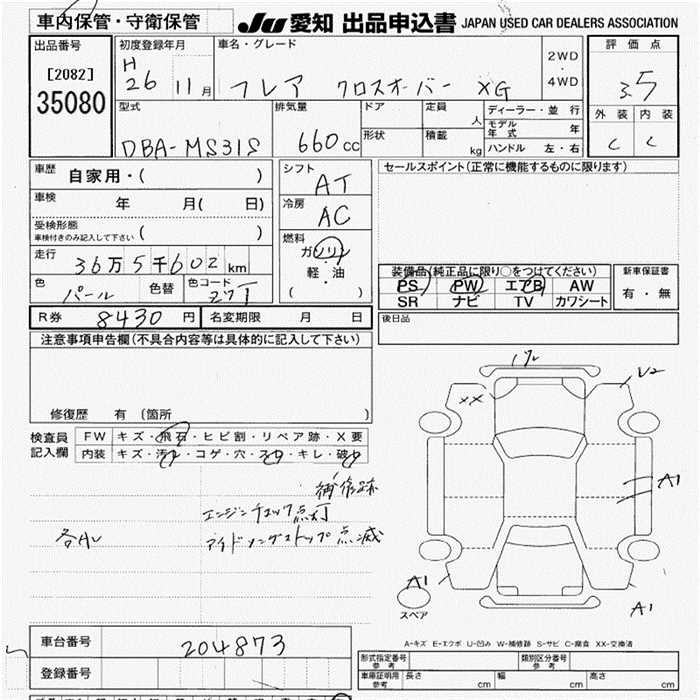 車内保管・守衛保管 JU 愛知 出品申込書 JAPAN USED CAR DEALERS ASSOCIATION
出品番号 初度登録年月 車名・グレード 評価点
[2082] H 26 11月 フレア クロスオーバー XG 2WD・4WD 3.5
35080
型式 排気量 ドア 定員 人 ディーラー・並行 外装 内装
DBA-MS31S 660cc 形状 積載 kg モデル年式 年 C C
ハンドル 左・右
車歴 自家用・( ) シフト AT セールスポイント(正常に機能するものに限ります)
車検 年 月( 日) 冷房 AC
受検形態
車検付きのみ記入して下さい ( )
燃料 ガソリン・軽油 ( )
走行 36万5千602km
色 パール 色替 色コード Z7T
装備品(純正品に限り〇をつけてください) 新車保証書
PS PW エアB AW 有・無
SR ナビ TV カワシート
R券 8430円 名変期限 月 日 後日品
注意事項申告欄(不具合内容等は具体的に記入して下さい)
修復歴 有 (箇所 )
検査員記入欄 FW キズ・飛石・ヒビ割・リペア跡・X要
内装 キズ・汚れ・コゲ・穴・スレ・キレ・破れ
補修跡
エンジンチェック点灯
各小 アイドリングストップ点滅
XX
A1
A1
A1
スペア
A-キズ E-エクボ U-凹み W-補修跡 S-サビ C-腐食 XX-交換済
車台番号 204873
登録番号
形式指定番号 参考 類別区分番号 参考
車庫証明用 参考 長さ cm 幅 cm 高さ cm